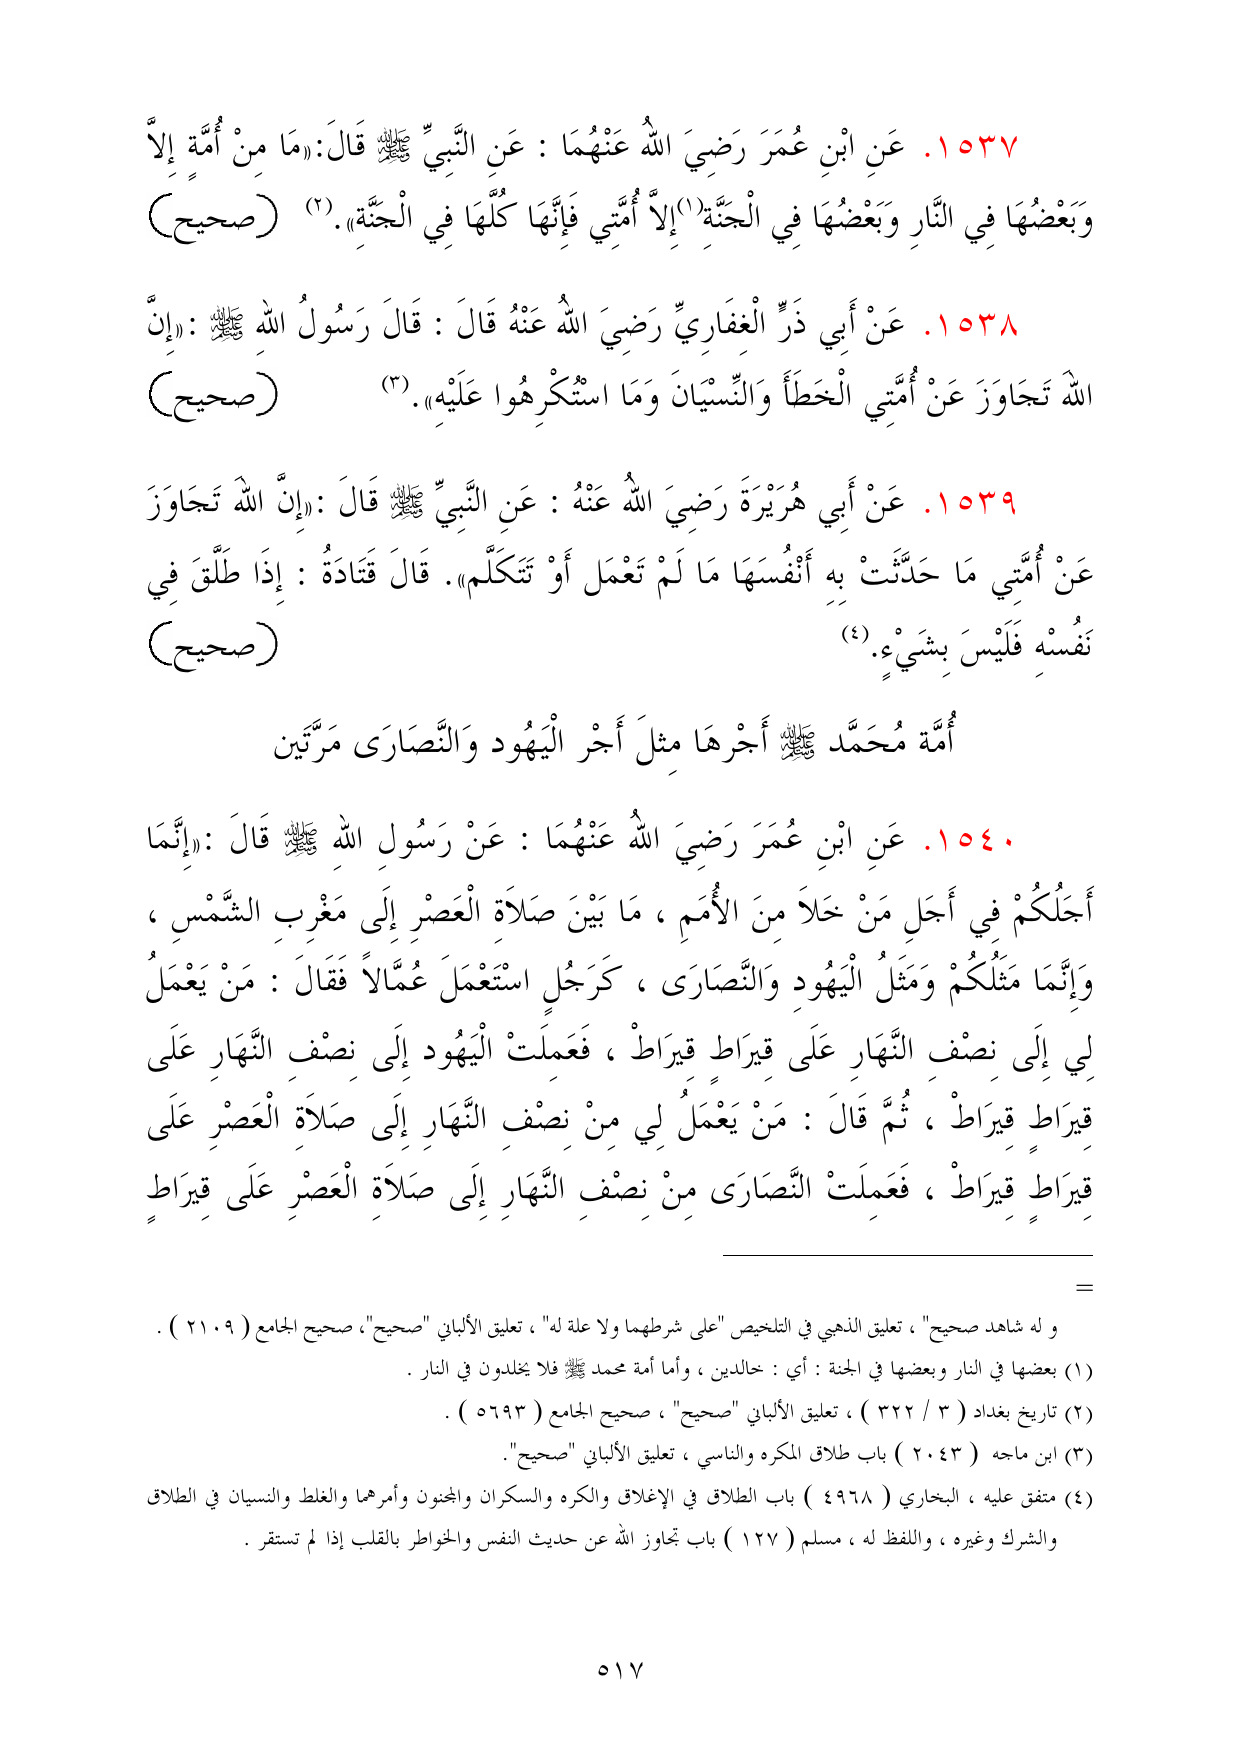 ١٥٣٧. عَنِ ابْنِ عُمَرَ رَضِيَ اللهُ عَنْهُمَا : عَنِ النَّبِيِّ ﷺ قَالَ:«مَا مِنْ أُمَّةٍ إِلاَّ
وَبَعْضُهَا فِي النَّارِ وَبَعْضُهَا فِي الْجَنَّةِ(١)إِلاَّ أُمَّتِي فَإِنَّهَا كُلَّهَا فِي الْجَنَّةِ».(٢) (صحيح)
١٥٣٨. عَنْ أَبِي ذَرٍّ الْغِفَارِيِّ رَضِيَ اللهُ عَنْهُ قَالَ : قَالَ رَسُولُ اللهِ ﷺ :«إِنَّ
اللهَ تَجَاوَزَ عَنْ أُمَّتِي الْخَطَأَ وَالنِّسْيَانَ وَمَا اسْتُكْرِهُوا عَلَيْهِ».(٣) (صحيح)
١٥٣٩. عَنْ أَبِي هُرَيْرَةَ رَضِيَ اللهُ عَنْهُ : عَنِ النَّبِيِّ ﷺ قَالَ :«إِنَّ اللهَ تَجَاوَزَ
عَنْ أُمَّتِي مَا حَدَّثَتْ بِهِ أَنْفُسَهَا مَا لَمْ تَعْمَل أَوْ تَتَكَلَّم». قَالَ قَتَادَةُ : إِذَا طَلَّقَ فِي
نَفُسْهِ فَلَيْسَ بِشَيْءٍ.(٤) (صحيح)
أُمَّة مُحَمَّد ﷺ أَجْرهَا مِثلَ أَجْر الْيَهُود وَالنَّصَارَى مَرَّتَين
١٥٤٠. عَنِ ابْنِ عُمَرَ رَضِيَ اللهُ عَنْهُمَا : عَنْ رَسُولِ اللهِ ﷺ قَالَ :«إِنَّمَا
أَجَلُكُمْ فِي أَجَلِ مَنْ خَلاَ مِنَ الأُمَمِ ، مَا بَيْنَ صَلاَةِ الْعَصْرِ إِلَى مَغْرِبِ الشَّمْسِ ،
وَإِنَّمَا مَثَلُكُمْ وَمَثَلُ الْيَهُودِ وَالنَّصَارَى ، كَرَجُلٍ اسْتَعْمَلَ عُمَّالاً فَقَالَ : مَنْ يَعْمَلُ
لِي إِلَى نِصْفِ النَّهَارِ عَلَى قِيرَاطٍ قِيرَاطْ ، فَعَمِلَتْ الْيَهُود إِلَى نِصْفِ النَّهَارِ عَلَى
قِيرَاطٍ قِيرَاطْ ، ثُمَّ قَالَ : مَنْ يَعْمَلُ لِي مِنْ نِصْفِ النَّهَارِ إِلَى صَلاَةِ الْعَصْرِ عَلَى
قِيرَاطٍ قِيرَاطْ ، فَعَمِلَتْ النَّصَارَى مِنْ نِصْفِ النَّهَارِ إِلَى صَلاَةِ الْعَصْرِ عَلَى قِيرَاطٍ
=
و له شاهد صحيح" ، تعليق الذهبي في التلخيص "على شرطهما ولا علة له" ، تعليق الألباني "صحيح"، صحيح الجامع ( ٢١٠٩ ) .
(١) بعضها في النار وبعضها في الجنة : أي : خالدين ، وأما أمة محمد ﷺ فلا يخلدون في النار .
(٢) تاريخ بغداد ( ٣ / ٣٢٢ ) ، تعليق الألباني "صحيح" ، صحيح الجامع ( ٥٦٩٣ ) .
(٣) ابن ماجه ( ٢٠٤٣ ) باب طلاق المكره والناسي ، تعليق الألباني "صحيح".
(٤) متفق عليه ، البخاري ( ٤٩٦٨ ) باب الطلاق في الإغلاق والكره والسكران والمجنون وأمرهما والغلط والنسيان في الطلاق
والشرك وغيره ، واللفظ له ، مسلم ( ١٢٧ ) باب تجاوز الله عن حديث النفس والخواطر بالقلب إذا لم تستقر .
٥١٧